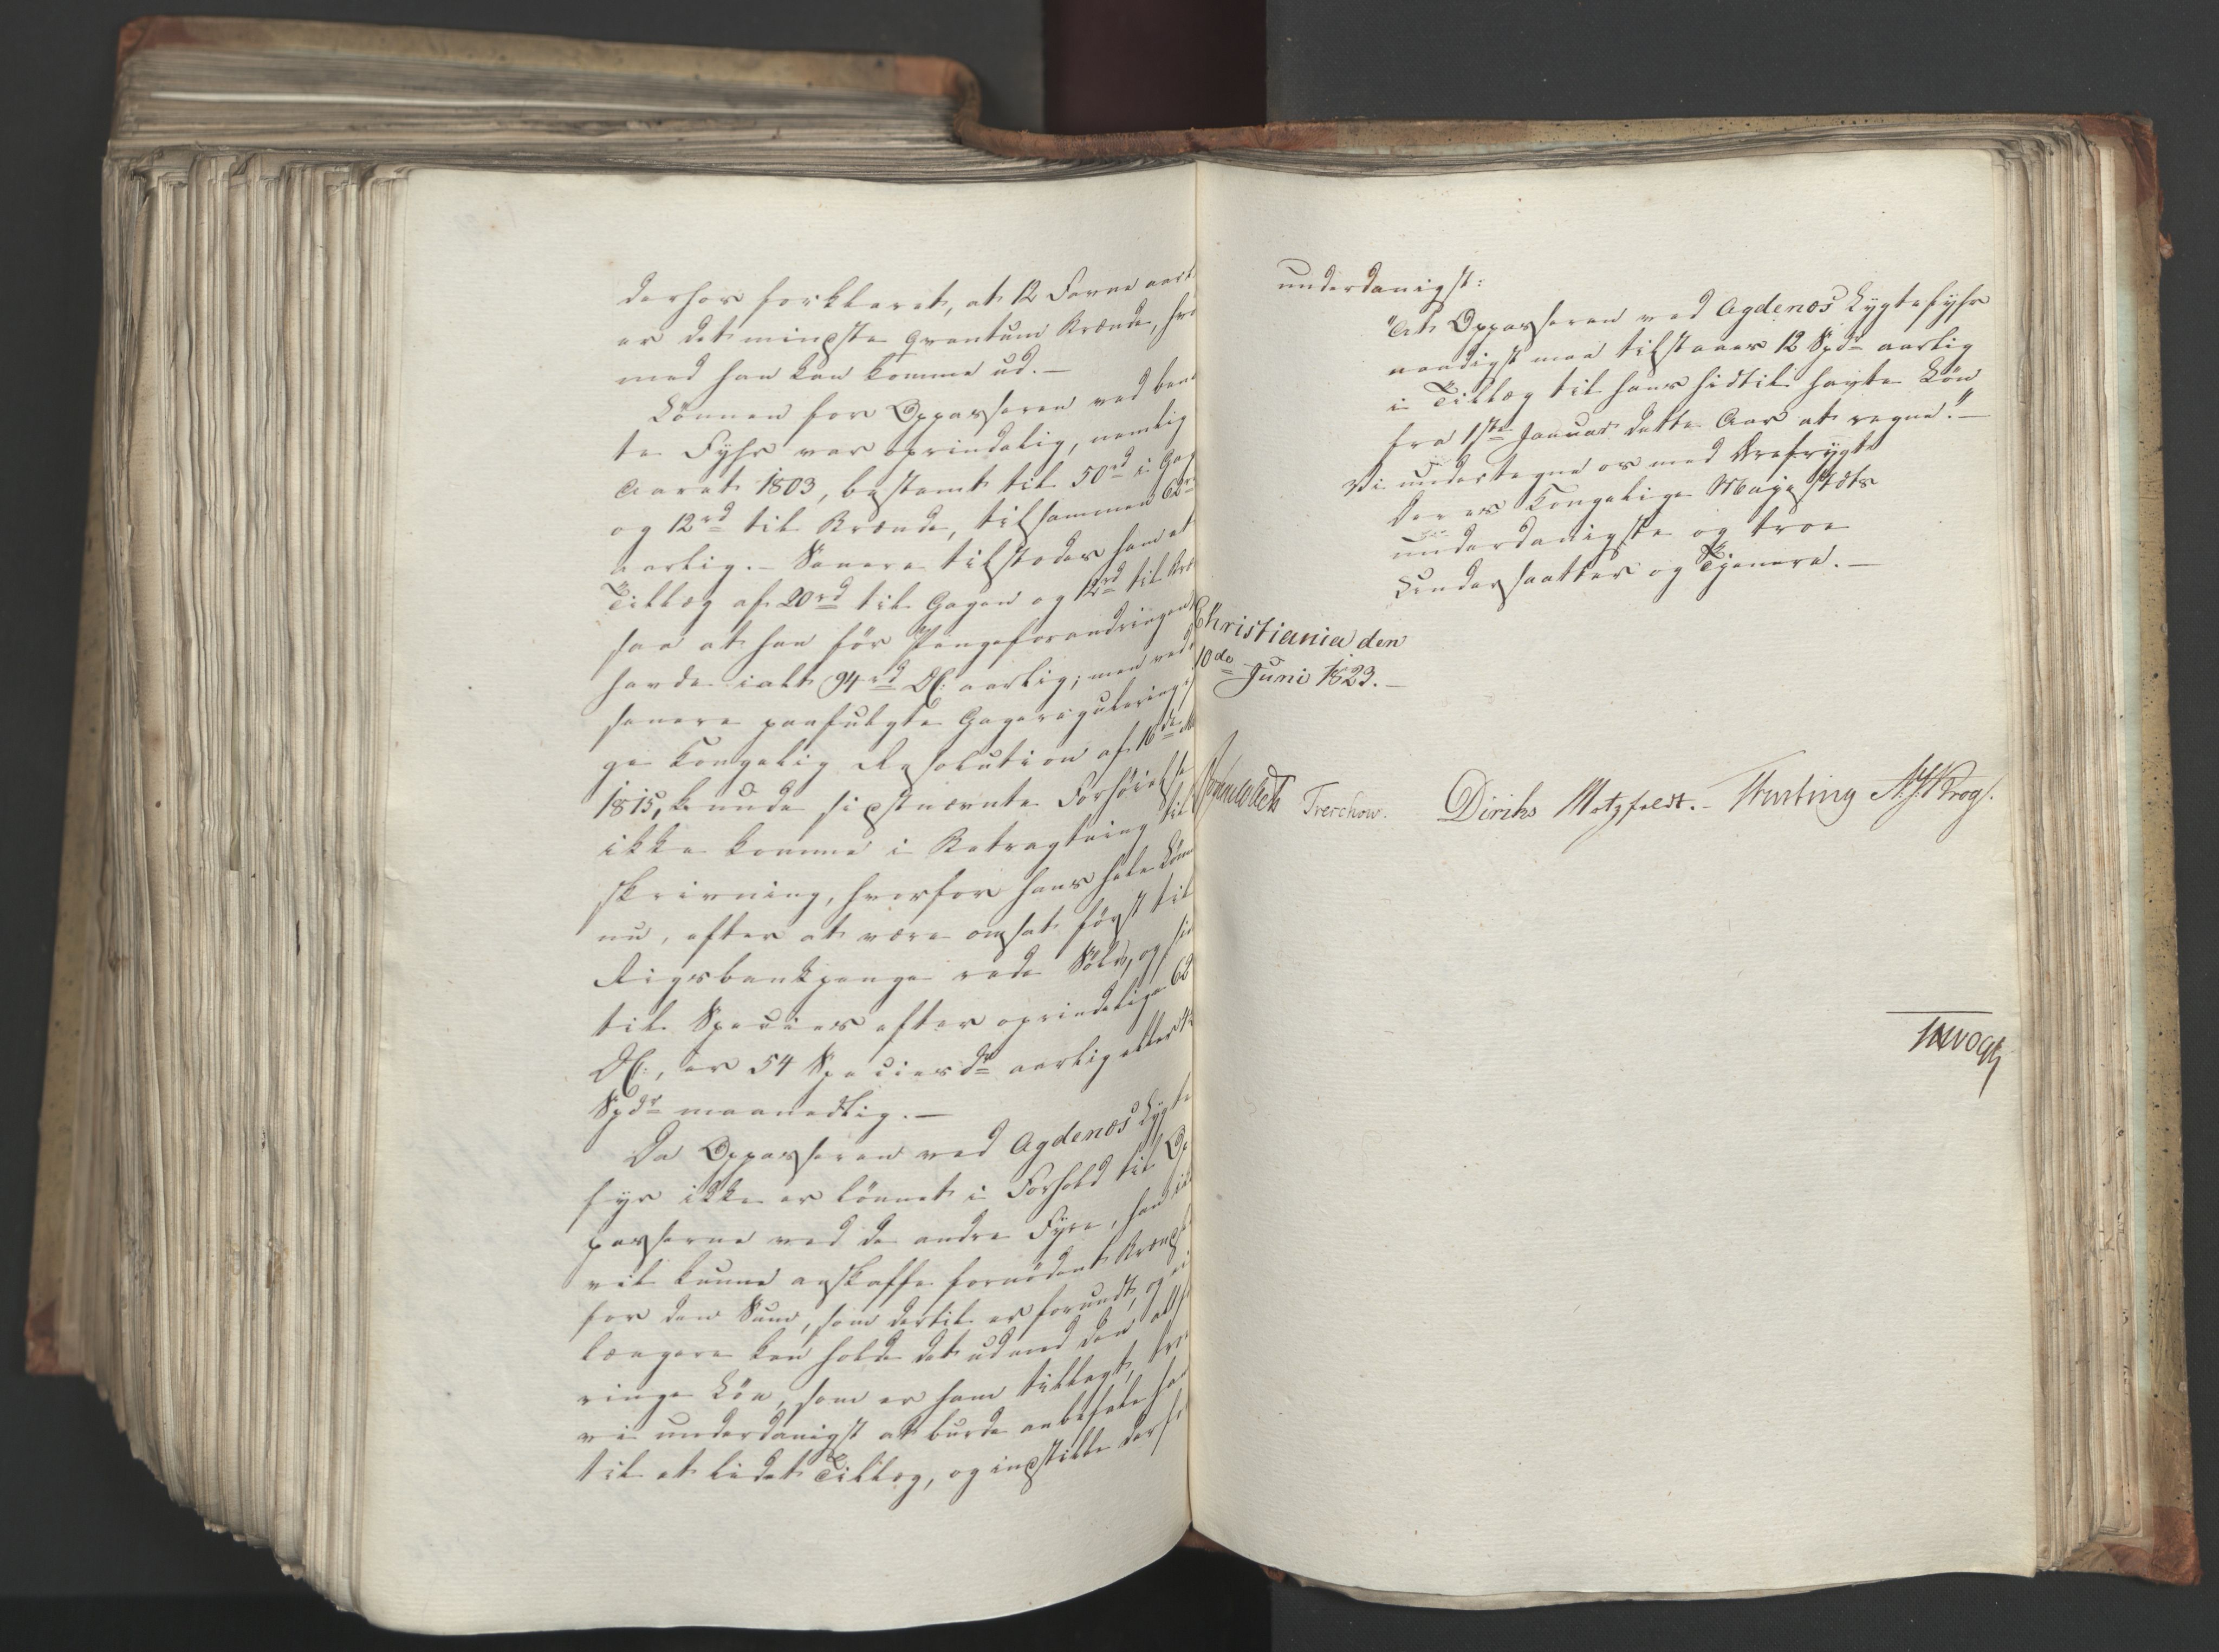 derhos forklaret, at 12 Favne aarl
er det mindste Qvantum Brænde, hvor
med han kan komme ud. —
Lönnen for Oppasseren ved bem
te Fyhr var oprindelig, nemlig
Aaret 1803, bestemt til 50 rd i Gag
og 12 rd til Brænde, tilsammen 62 r
aarlig. — Senere tilstodes ham et
Tillæg af 20 rd til Gagen og 12 rd til Bræ
saa at han för Pengeforandringen
havde ialt 94 rd DC: aarlig; men ved
senere paafulgte Gageregulering if
ge Kongelig Resolution af 16de Ma
1815, kunde sidstnævnte Forhöielse
ikke komme i Betragtning til
skrivning, hvorfor hans hele Lön
nu, efter at være omsat först til
Rigsbankpenge rede Sölv, og sid
til Species efter oprindelige 62
DC:, er 54 Speciesdr aarlig eller 4½
Spdr maanedlig. —
Da Oppasseren ved Agdenæs Lygte
fyr ikke er lönnet i Forhold til Op
passerne ved de andre Fyre, han ik
vil kunne anskaffe fornödent Brænds
for den Sum, som dertil er forundt, og ei
længere kan holde det ud med den alt
ringe Lön, som er ham tillagt, troe
vi underdanigst at burde anbefale ham
til et lidet Tillæg, og indstille derfor
underdanigst:
"At Oppasseren ved Agdenæs Lygtefyhr
naadigst maa tilstaaes 12 Spdr aarlig
i Tillæg til hans hidtil havte Lön
fra 1ste Januar dette Aar at regne." —
Vi undertegne os med Ærefrygt
Deres Kongelige Majestæts
underdanigste og troe
Undersaatter og Tjenere. —
Christiania den
10de Juni 1823. —
Sommerhielm Treschow. Diriks Motzfeldt. — Fasting A. H. Krog.
JHVogt